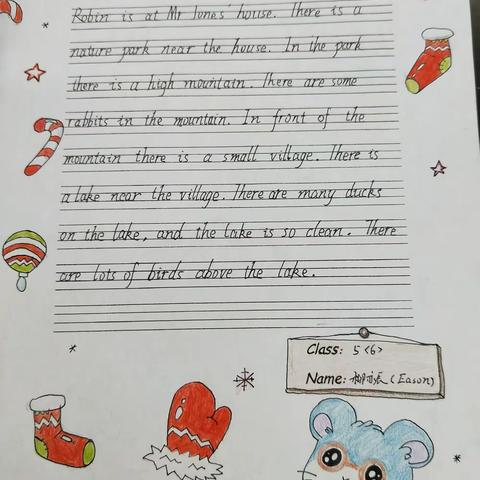 Robin is at Mr Jones' house. There is a
nature park near the house. In the park
there is a high mountain. There are some
rabbits in the mountain. In front of the
mountain there is a small village. There is
a lake near the village. There are many ducks
on the lake, and the lake is so clean. There
are lots of birds above the lake.
Class: 5<6>
Name: (Eason)